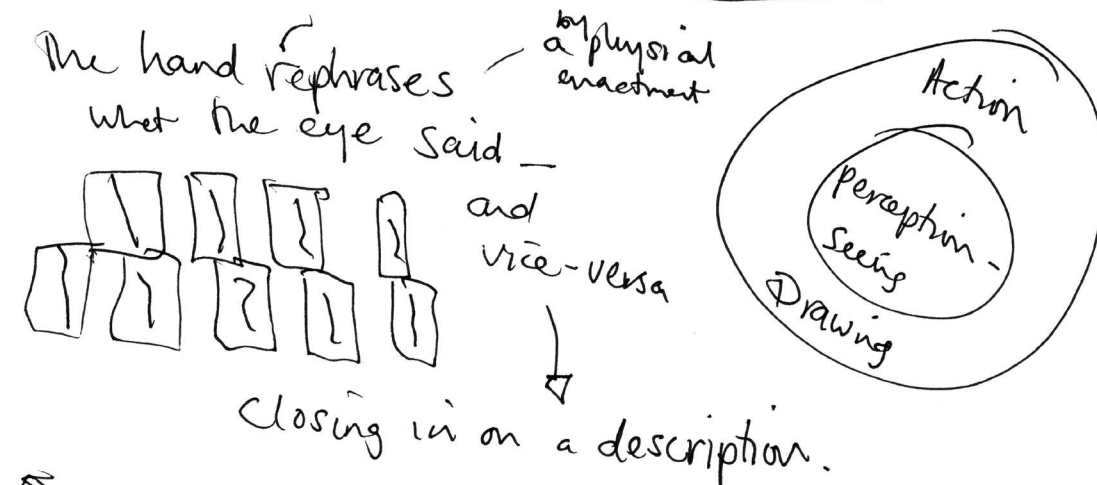 The hand rephrases
by
a physical
enactment
what the eye said –
and
vice-versa
closing in on a description.
Action
perception –
seeing
Drawing